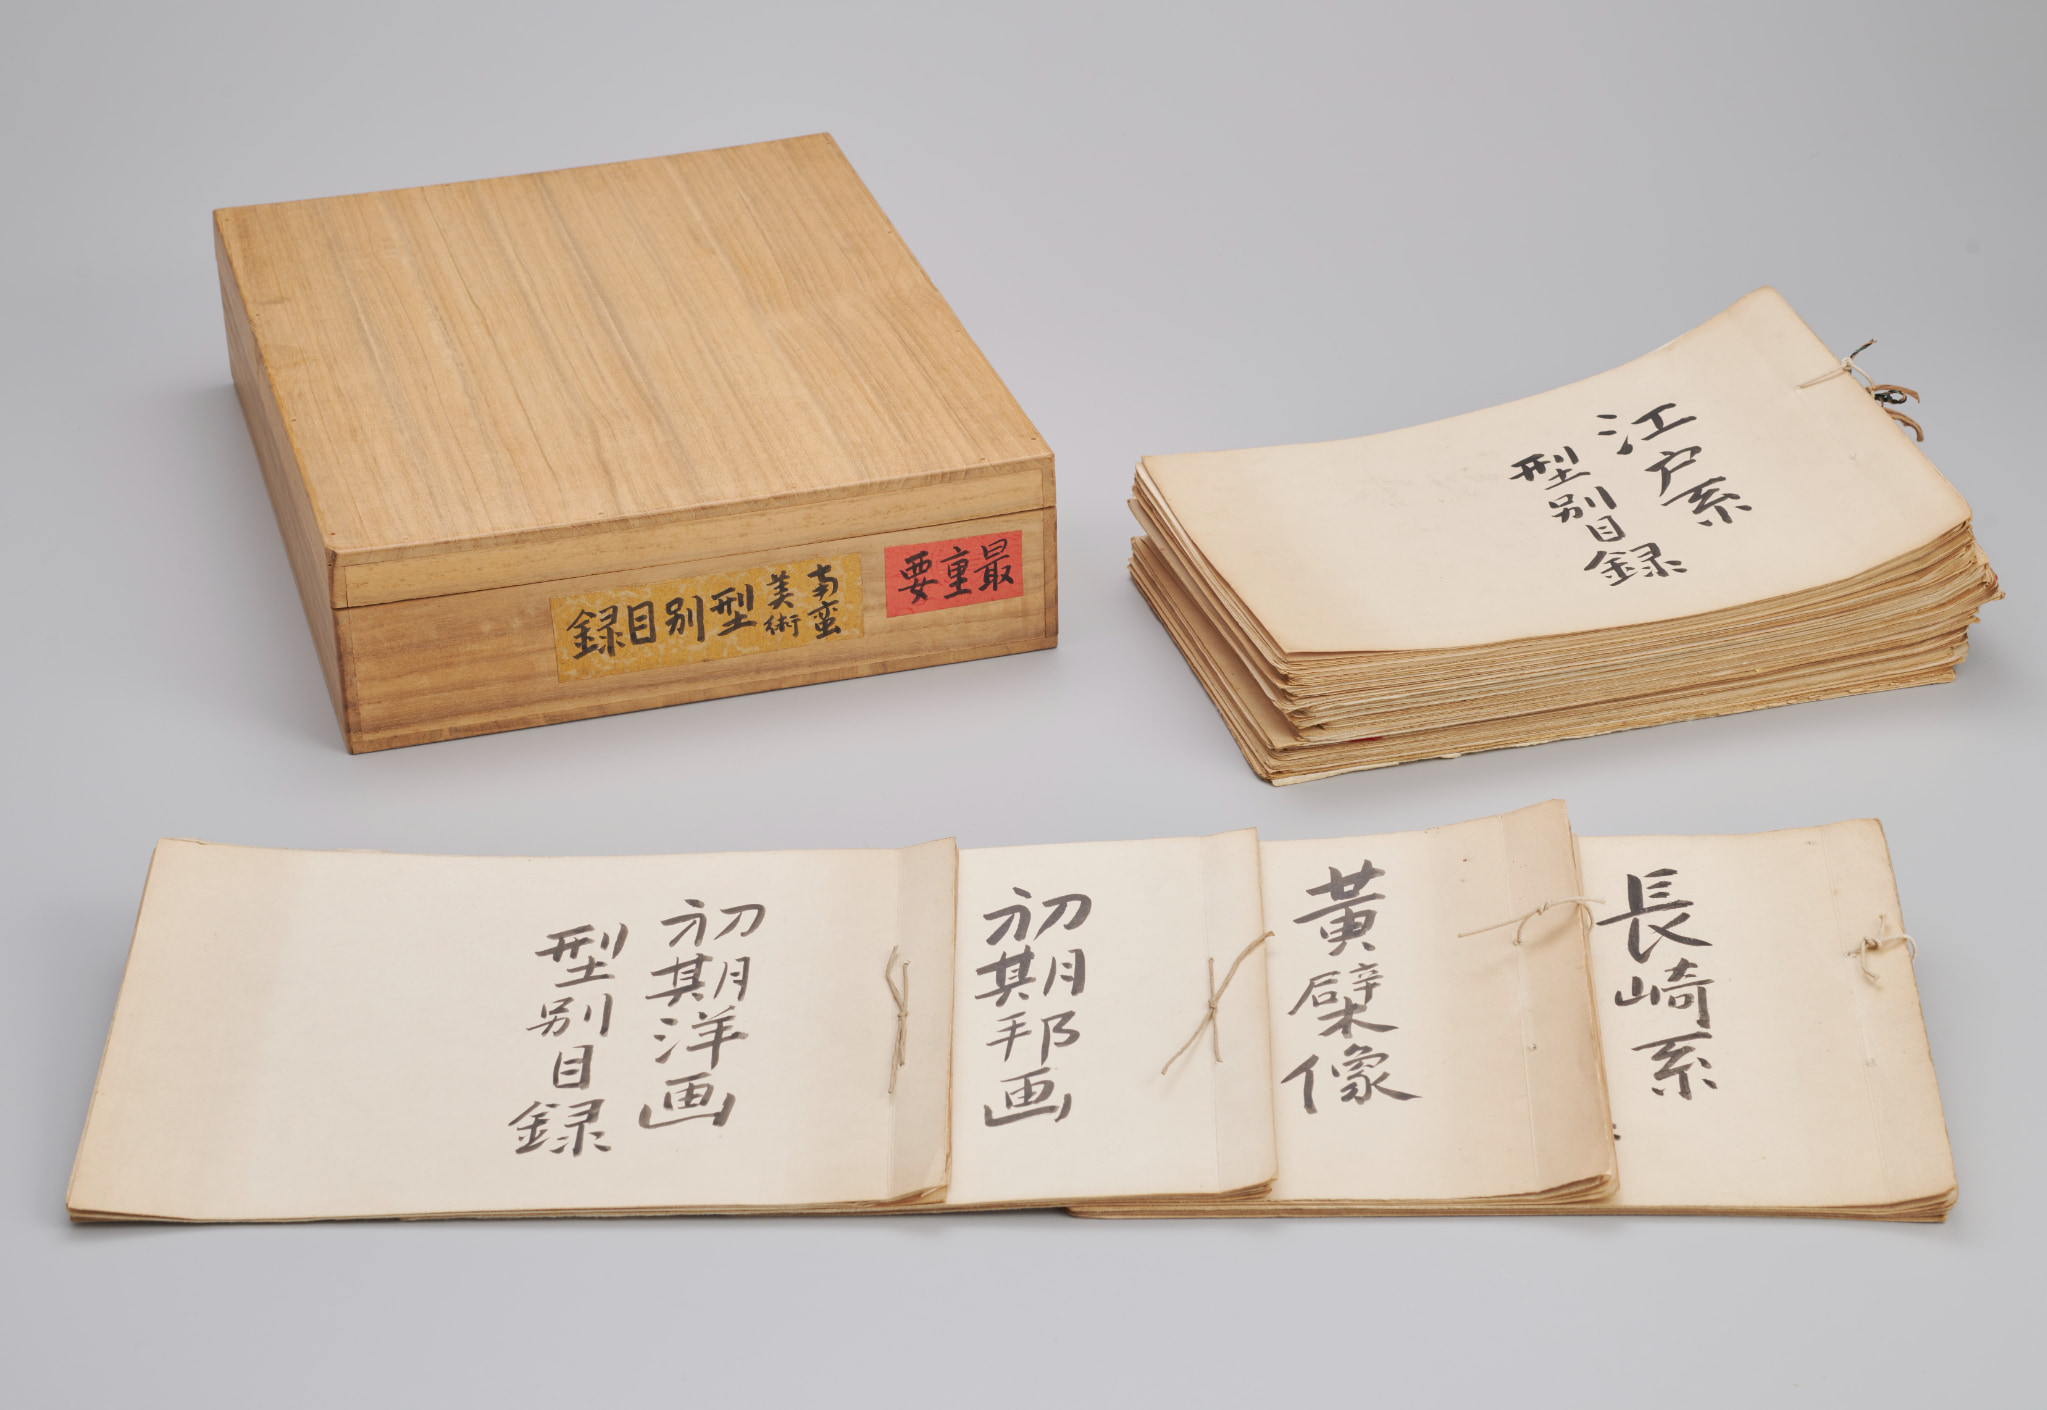 最重要
南蛮
美術
型別目録
江戸系
型別目録
長崎系
黄檗像
初期邦画
初期洋画
型別目録